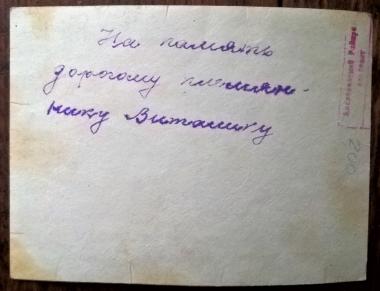 На память
дорогому племян-
нику Виташику
200